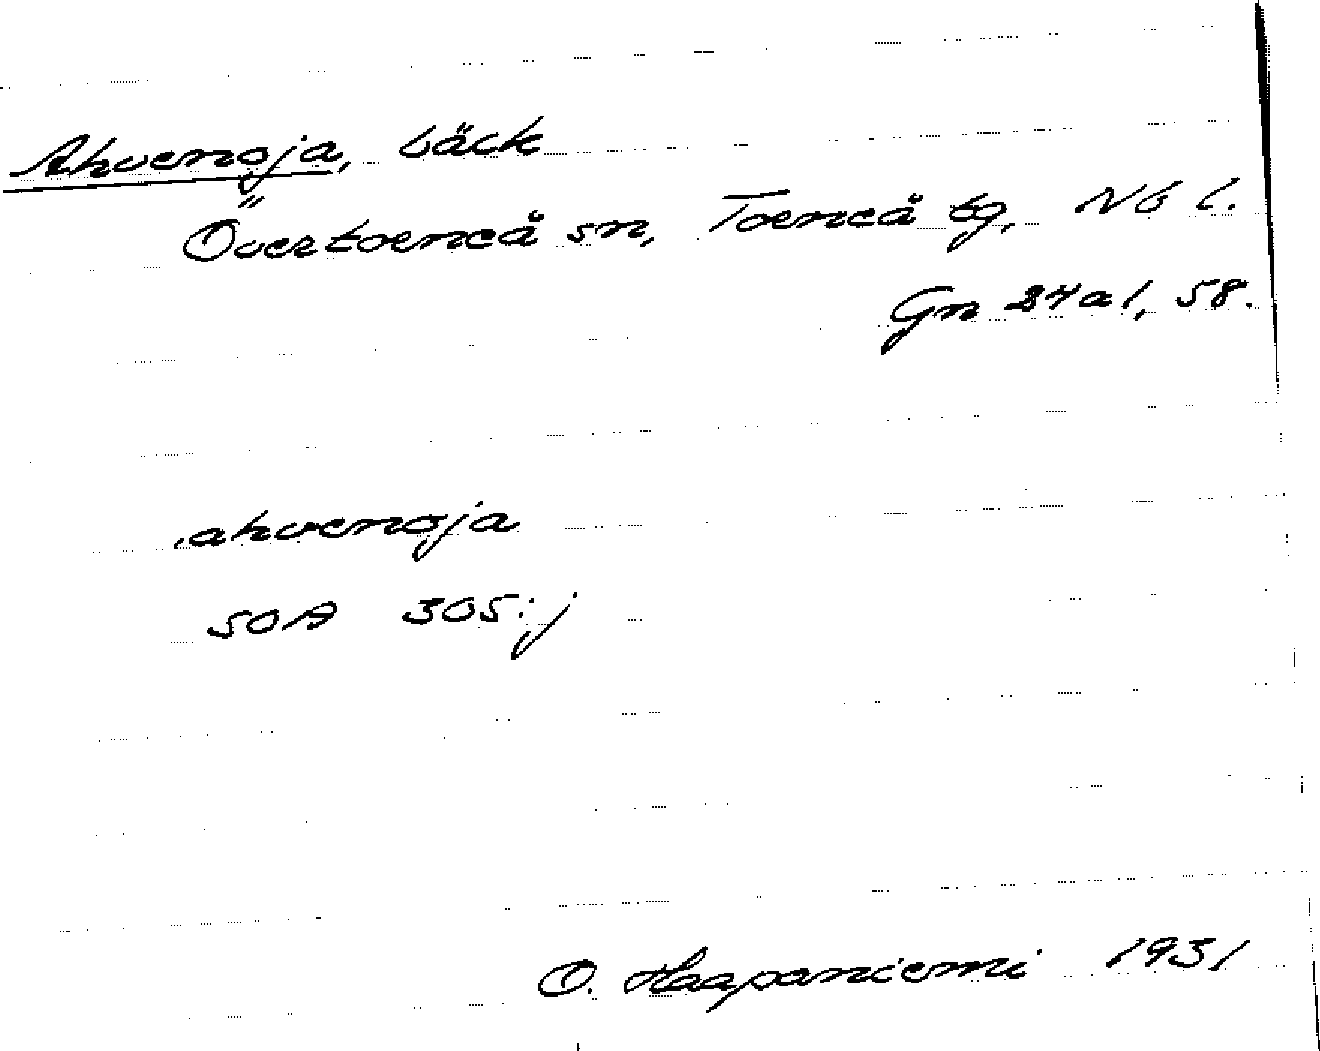 Ahvenoja, bäck
Övertorneå sn, Torneå tg, Nb l.
Gn 24a1, 58.
ahvenoja
SOA 305:j
O. Haapaniemi 1931